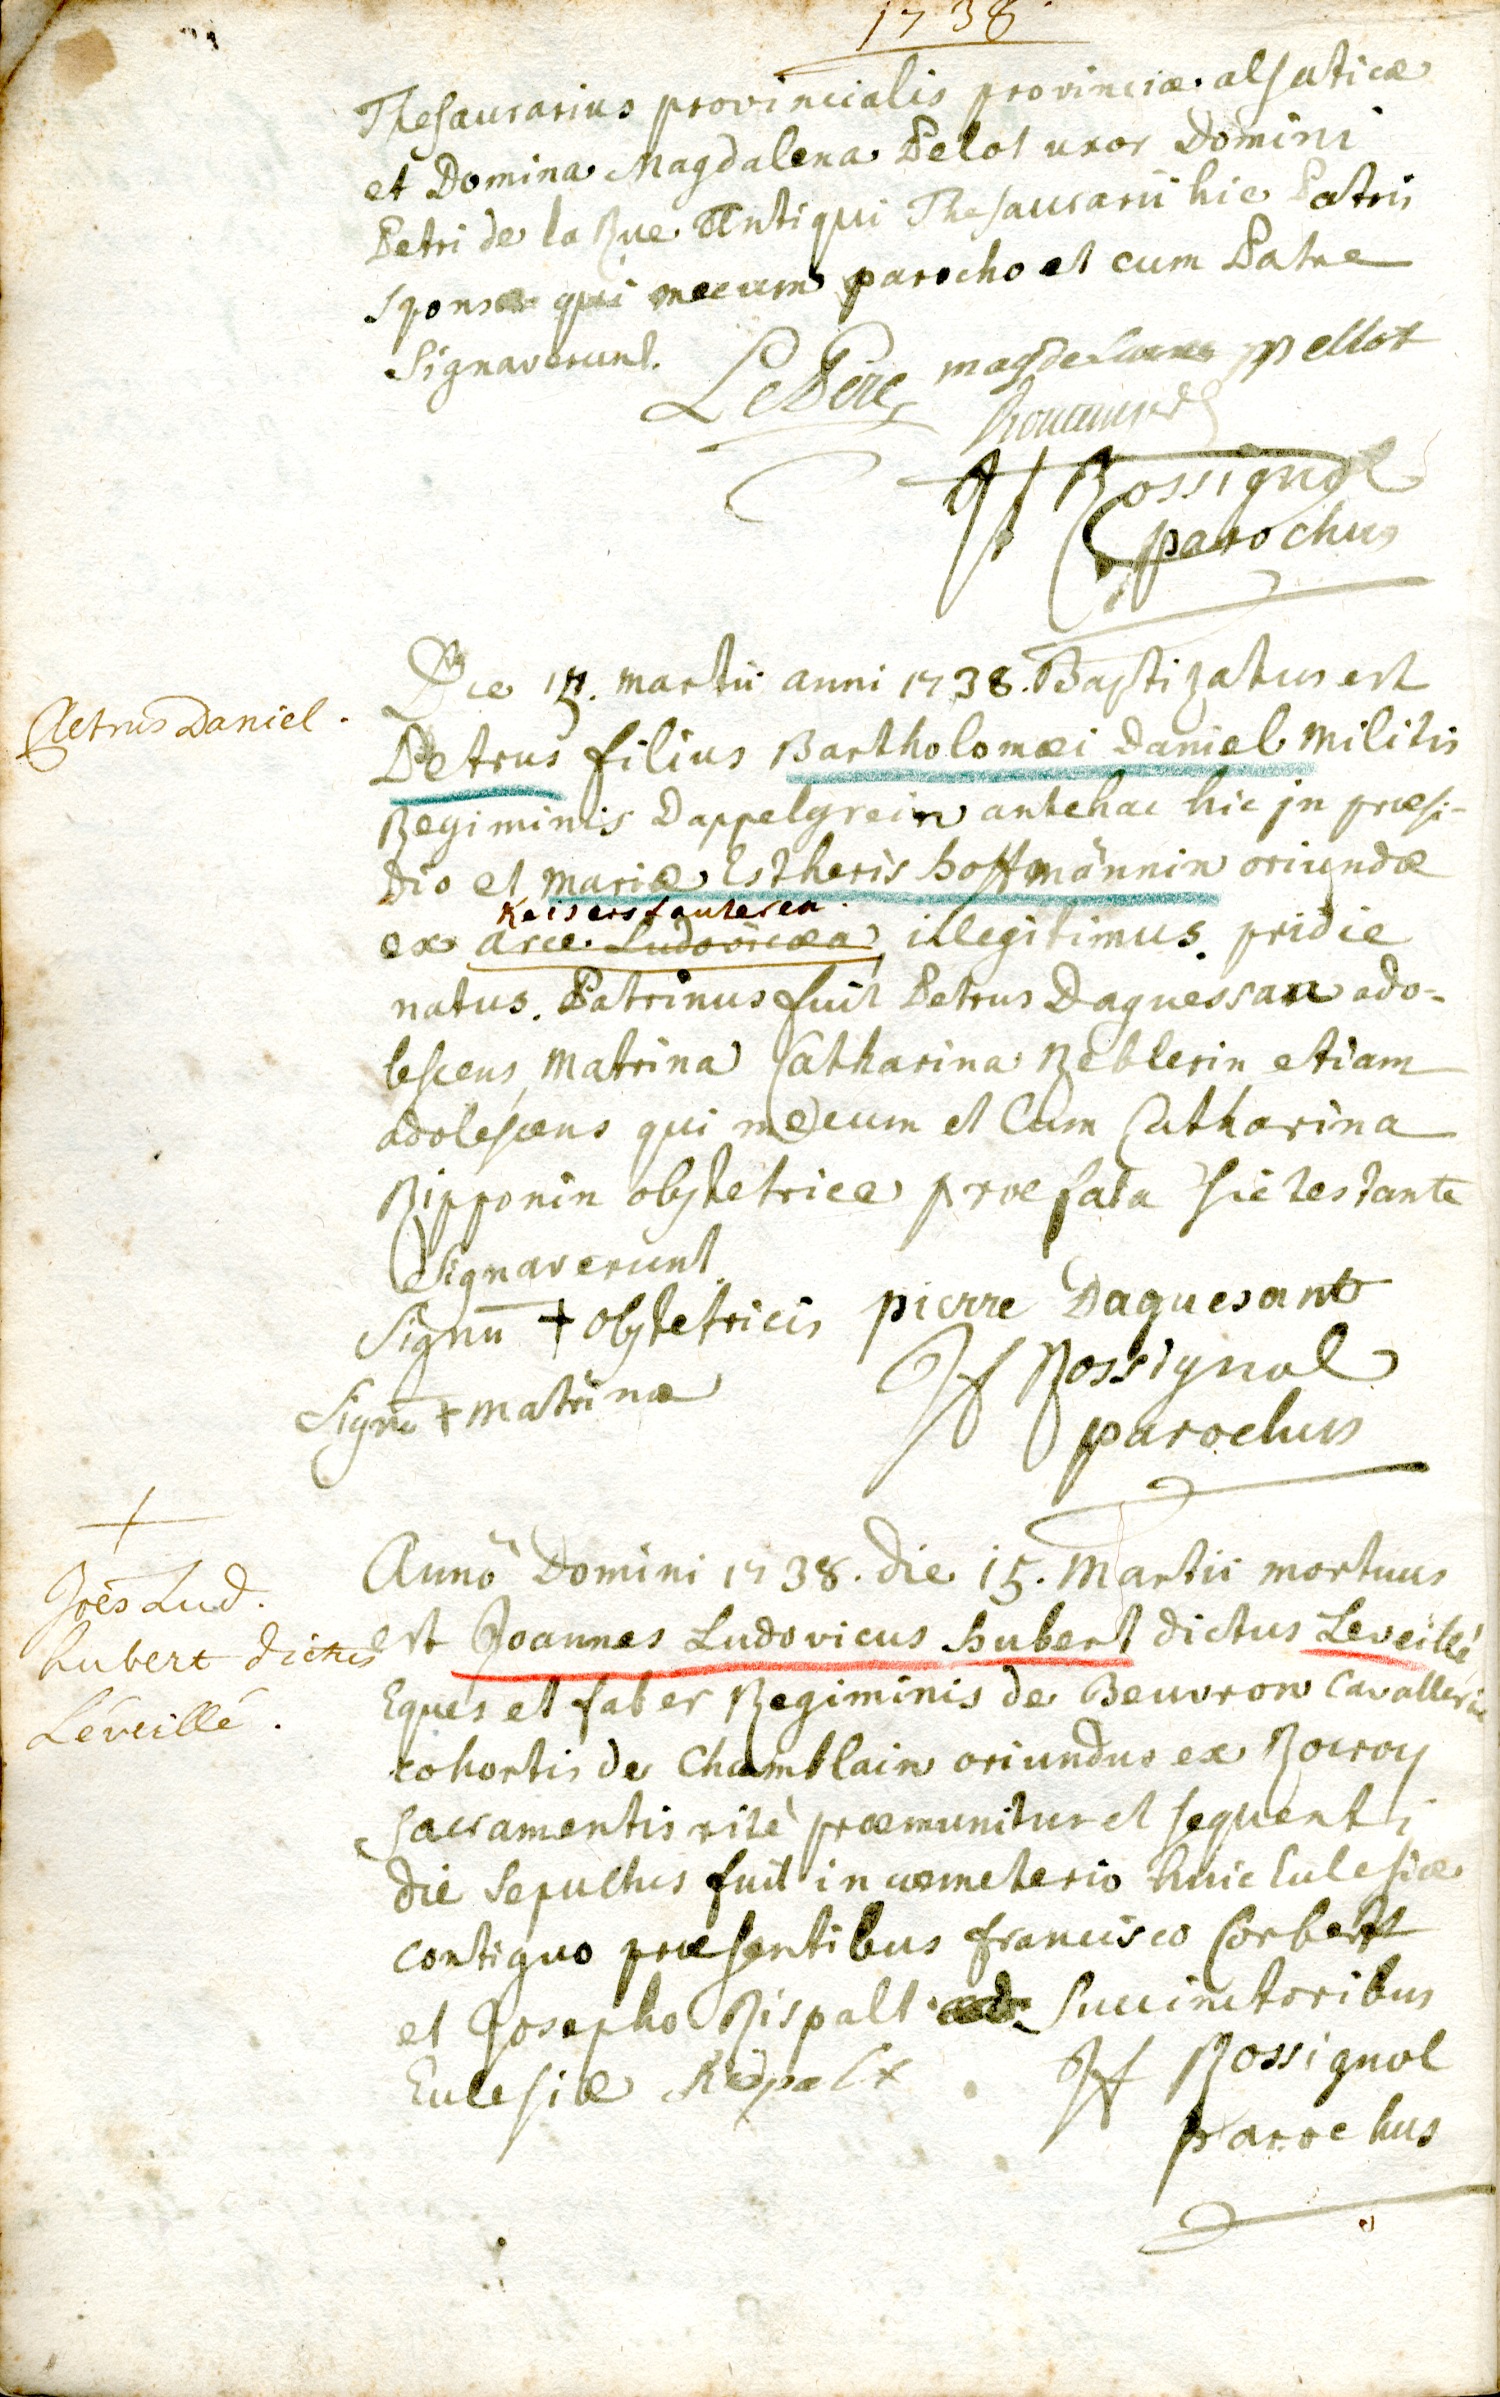 1738
Thesaurarius provincialis provinciæ alsaticæ
et Domina Magdalena Pelot uxor Domini
Petri de la Rue Antiqui Thesaurarii hic Patris
sponsæ qui mecum parocho et cum Patre
signaverunt. Le Pere magdelaine pellot
Jf Rossignol
parochus
Petrus Daniel.
Die martii anni 1738. Baptizatus est
Petrus filius Bartholomæi Daniel militis
Regiminis Dappelgrein antehac hic in præsi-
dio et mariæ Estheris hoffmännin oriundæ
Keiserslauteren.
ex arce Ludovicæa, illegitimus. pridie
natus. Patrinus fuit Petrus Daguessan ado-
lescens, Matrina Catharina Reblerin etiam
adolescens qui mecum et Cum Catharina
Ripponin obstetrice præfata sic testante
signaverunt.
Signū + obstetricis pierre Daguesant
Signū + matrinæ Jf Rossignol
parochus
+
Joēs Lud.
hubert dictus
Léveillé.
Annō Domini 1738. die 15. Martii mortuus
est Joannes Ludovicus hubert dictus Leveillé
Eques et faber Regiminis de Beuvron Cavalleriæ
cohortis de Chamblain oriundus ex Rocroy
sacramentis ritè præmunitur et sequenti
die sepultus fuit in cœmeterio huic Eclesiæ
contiguo præsentibus francisco Corbert
et Josepho Rispalt succinctoribus
Eclesiæ Rispalt Jf Rossignol
parochus